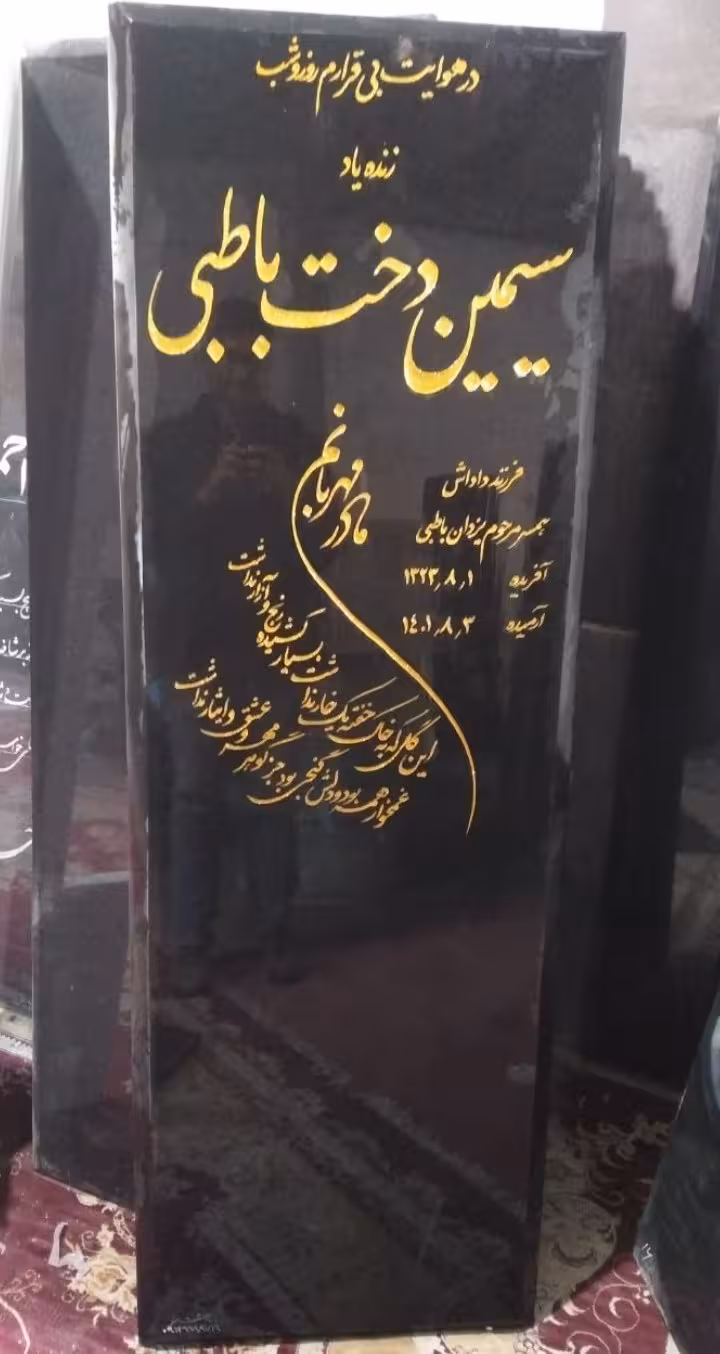 در هوایت بی قرارم روز و شب
زنده یاد
سیمین دخت باطبی
فرزند داداش
همسر مرحوم یزدان باطبی
آفریده ۱۳۲۳٫۸٫۱
آرمیده ۱٤۰۱٫۸٫۳
مادر مهربانم
این گل که به خاک خفته یک خار نداشت
بسیار کشیده رنج و آزار نداشت
غمخوار همه بود و دلش گنجی بود
جز گوهر مهر و عشق و ایثار نداشت